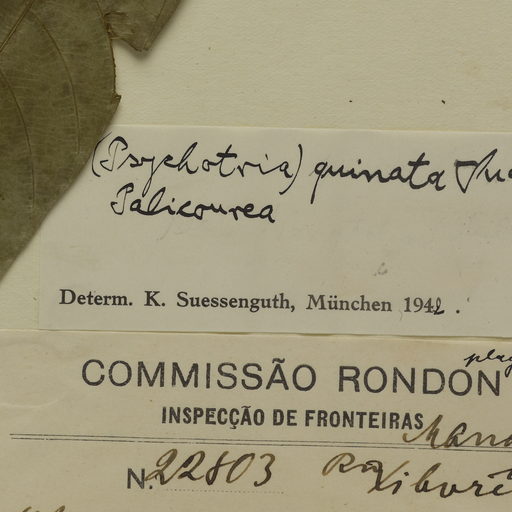 (Psychotria) quinata
Palicourea
Determ. K. Suessenguth, München 1942.
COMMISSÃO RONDON
INSPECÇÃO DE FRONTEIRAS
N. 22803